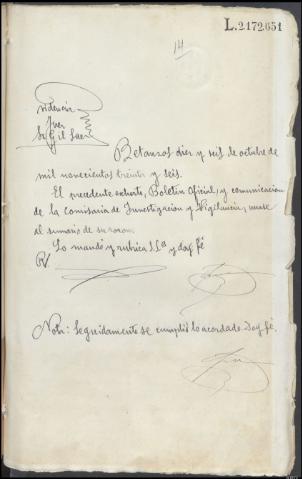 L.2172.651
14
videncia
Juez
Sr Gil Saenz
Betanzos diez y seis de octubre de
mil novecientos treinta y seis.
El precedente exhorto, Boletin Oficial, y comunicacion
de la Comisaria de Investigacion y Vigilancia, unase
al sumario de su razon.
Lo mandó y rubrica S.Sª y doy fé
R/
Nota: Seguidamente se cumplió lo acordado. Doy fé.